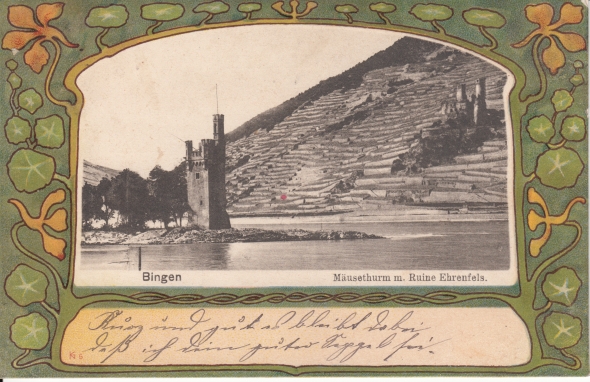 Bingen
Mäusethurm m. Ruine Ehrenfels.
Kurz und gut es bleibt dabei
daß ich dein guter Seppel sei.
No 6